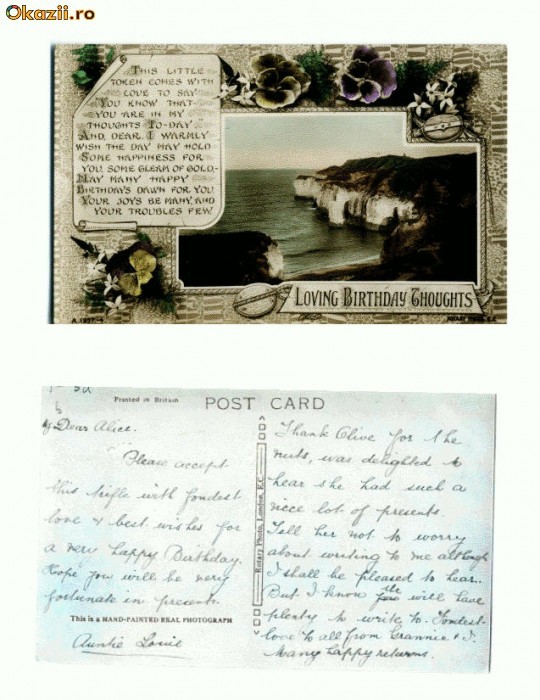 Okazii.ro
THIS LITTLE
TOKEN COMES WITH
LOVE TO SAY
YOU KNOW THAT
YOU ARE IN MY
THOUGHTS TO-DAY
AND, DEAR, I WARMLY
WISH THE DAY MAY HOLD
SOME HAPPINESS FOR
YOU, SOME GLEAM OF GOLD.
MAY MANY HAPPY
BIRTHDAYS DAWN FOR YOU
YOUR JOYS BE MANY, AND
YOUR TROUBLES FEW.
LOVING BIRTHDAY THOUGHTS
Printed in Britain
POST CARD
My Dear Alice.
Please accept
this trifle with fondest
love & best wishes for
a very happy Birthday.
Hope you will be very
fortunate in presents.
This is a HAND-PAINTED REAL PHOTOGRAPH
Auntie Louie
Rotary Photo, London, E.C.
Thank Olive for the
nuts, was delighted to
hear she had such a
nice lot of presents.
Tell her not to worry
about writing to me although
I shall be pleased to hear.
But I know she will have
plenty to write to. Fondest
love to all from Grannie & I.
Many happy returns.